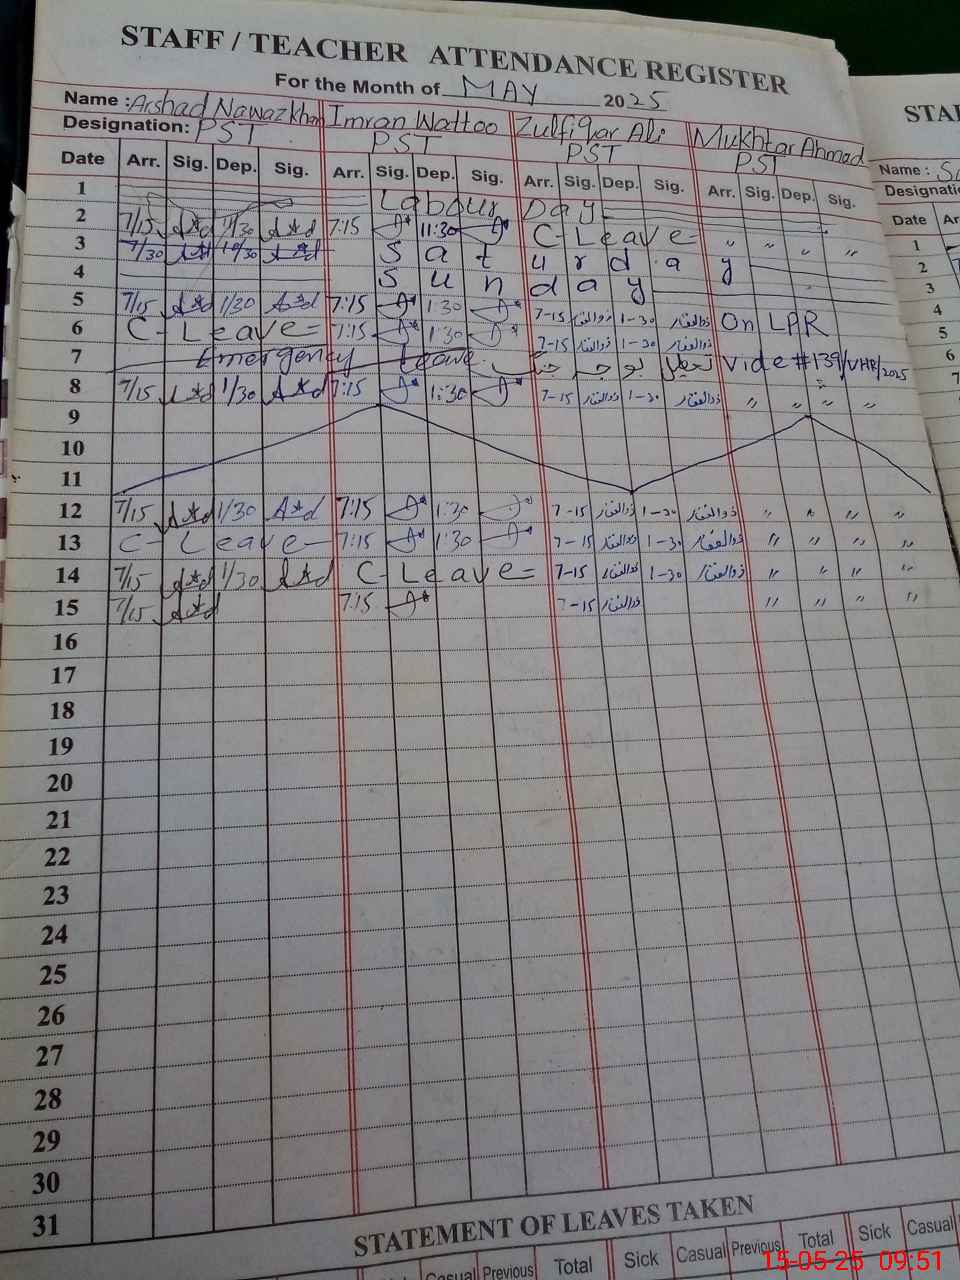 STAFF / TEACHER ATTENDANCE REGISTER
STAF
For the Month of MAY 2025
Name : Arshad Nawaz khan Imran Wattoo Zulfiqar Ali Mukhtar Ahmad
Name :
Designation: PST PST PST PST
Designatio
Date Arr. Sig. Dep. Sig. Arr. Sig. Dep. Sig. Arr. Sig. Dep. Sig. Arr. Sig. Dep. Sig.
Date Ar
1 Labour Day
2 7/15 11/30 7:15 11:30 C-Leave= " " " "
3 7/30 Saturday
4 Sunday
5 7/15 1/30 7:15 1:30 7-15 ذوالفقار 1-30 ذوالفقار On LPR
6 C-Leave= 7:15 1:30 7-15 ذوالفقار 1-30 ذوالفقار
7 Emergency Leave تعطیل بوجہ جنگ Vide #139/VHR/2025
8 7/15 1/30 7:15 1:30 7-15 ذوالفقار 1-30 ذوالفقار " " " "
9
10
11
12 7/15 1/30 7:15 1:30 7-15 ذوالفقار 1-30 ذوالفقار " " " "
13 C-Leave- 7:15 1:30 7-15 ذوالفقار 1-30 ذوالفقار " " " "
14 7/15 1/30 C-Leave= 7-15 ذوالفقار 1-30 ذوالفقار " " " "
15 7/15 7:15 7-15 ذوالفقار " " " "
16
17
18
19
20
21
22
23
24
25
26
27
28
29
30
31
1
2
3
4
5
6
7
STATEMENT OF LEAVES TAKEN
Sick Casual Previous Total Sick Casual Previous Total Sick Casual
15-05-25 09:51